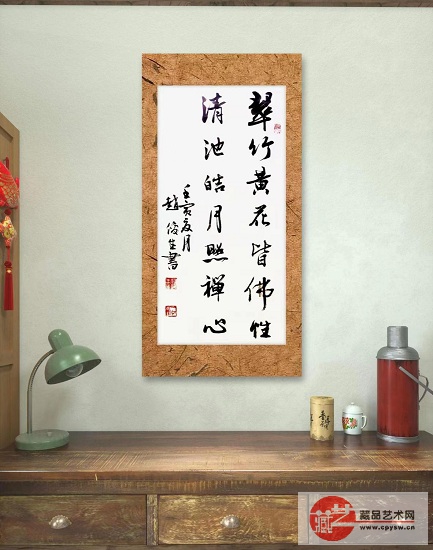 翠竹黃花皆佛性
清池皓月照禪心
壬寅夏月
趙俊生書
藏艺
藏品艺术网
www.cpysw.cn